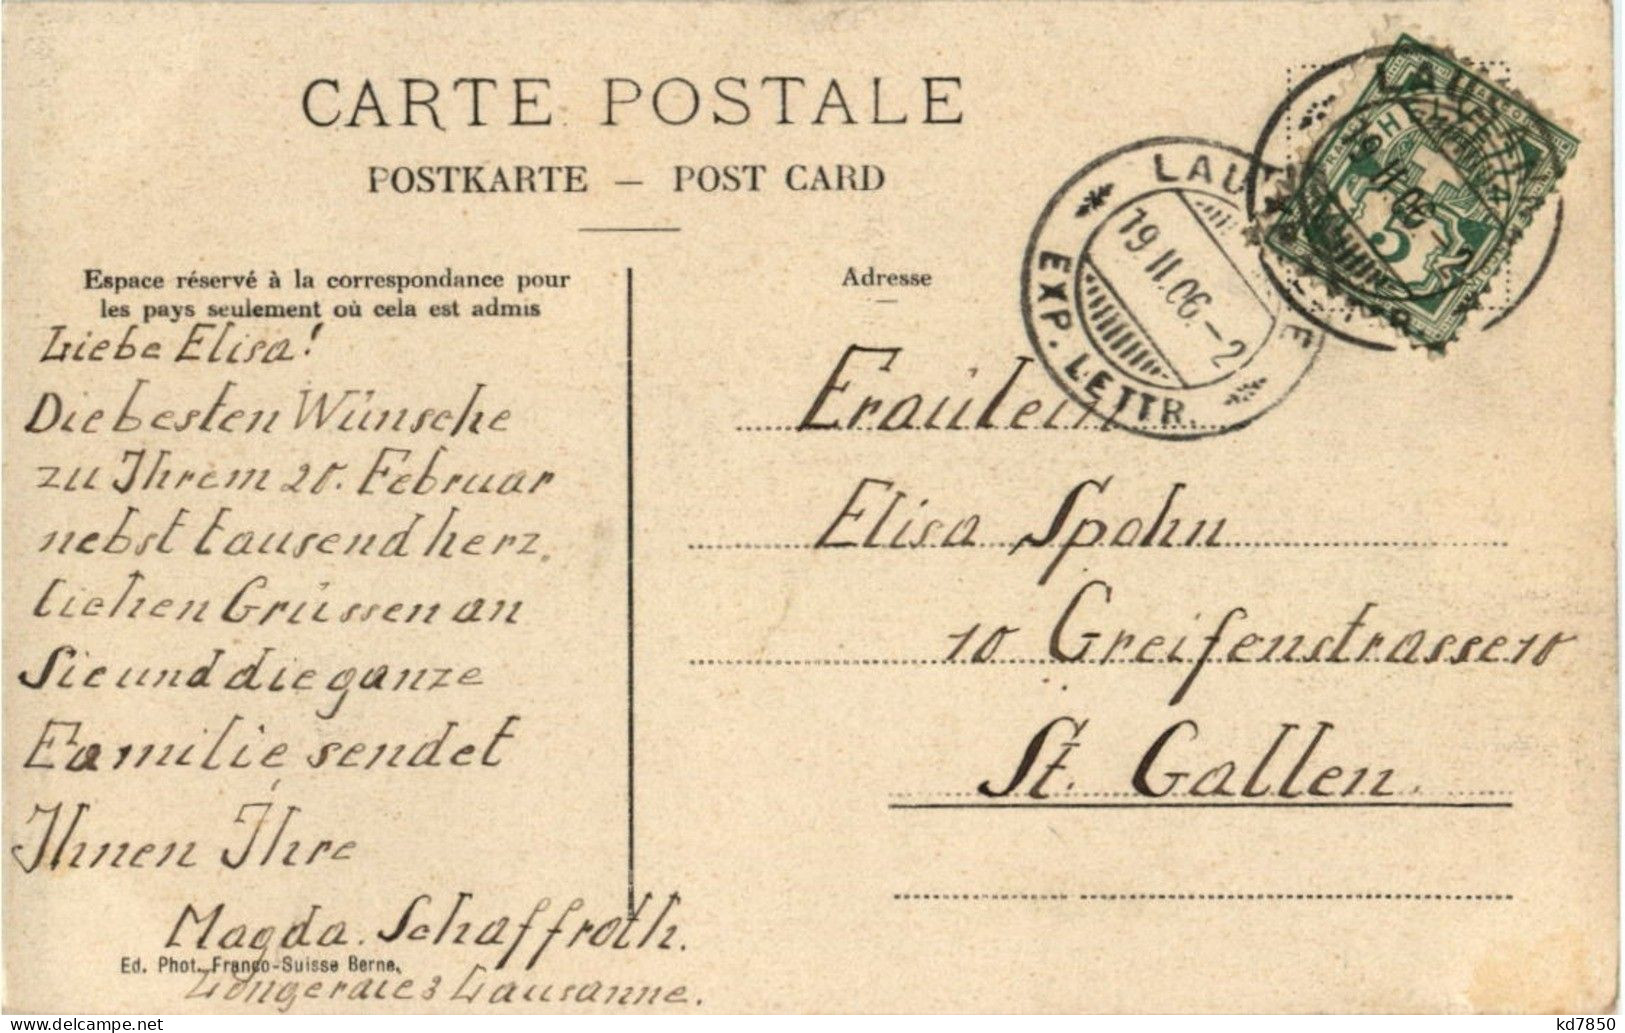 CARTE POSTALE
POSTKARTE — POST CARD
Espace réservé à la correspondance pour
les pays seulement où cela est admis
Adresse
LAUSANNE
19.II.06.–2
EXP. LETTR.
HELVETIA
5
Liebe Elisa!
Die besten Wünsche
zu Ihrem 20. Februar
nebst tausend herz.
lichen Grüssen an
Sie und die ganze
Familie sendet
Ihnen Ihre
Magda. Schaffroth.
Longeraie 3 Lausanne.
Ed. Phot. Franco-Suisse Berne.
Fraülein
Elisa Spohn
10 Greifenstrasse 10
St. Gallen.
kd7850